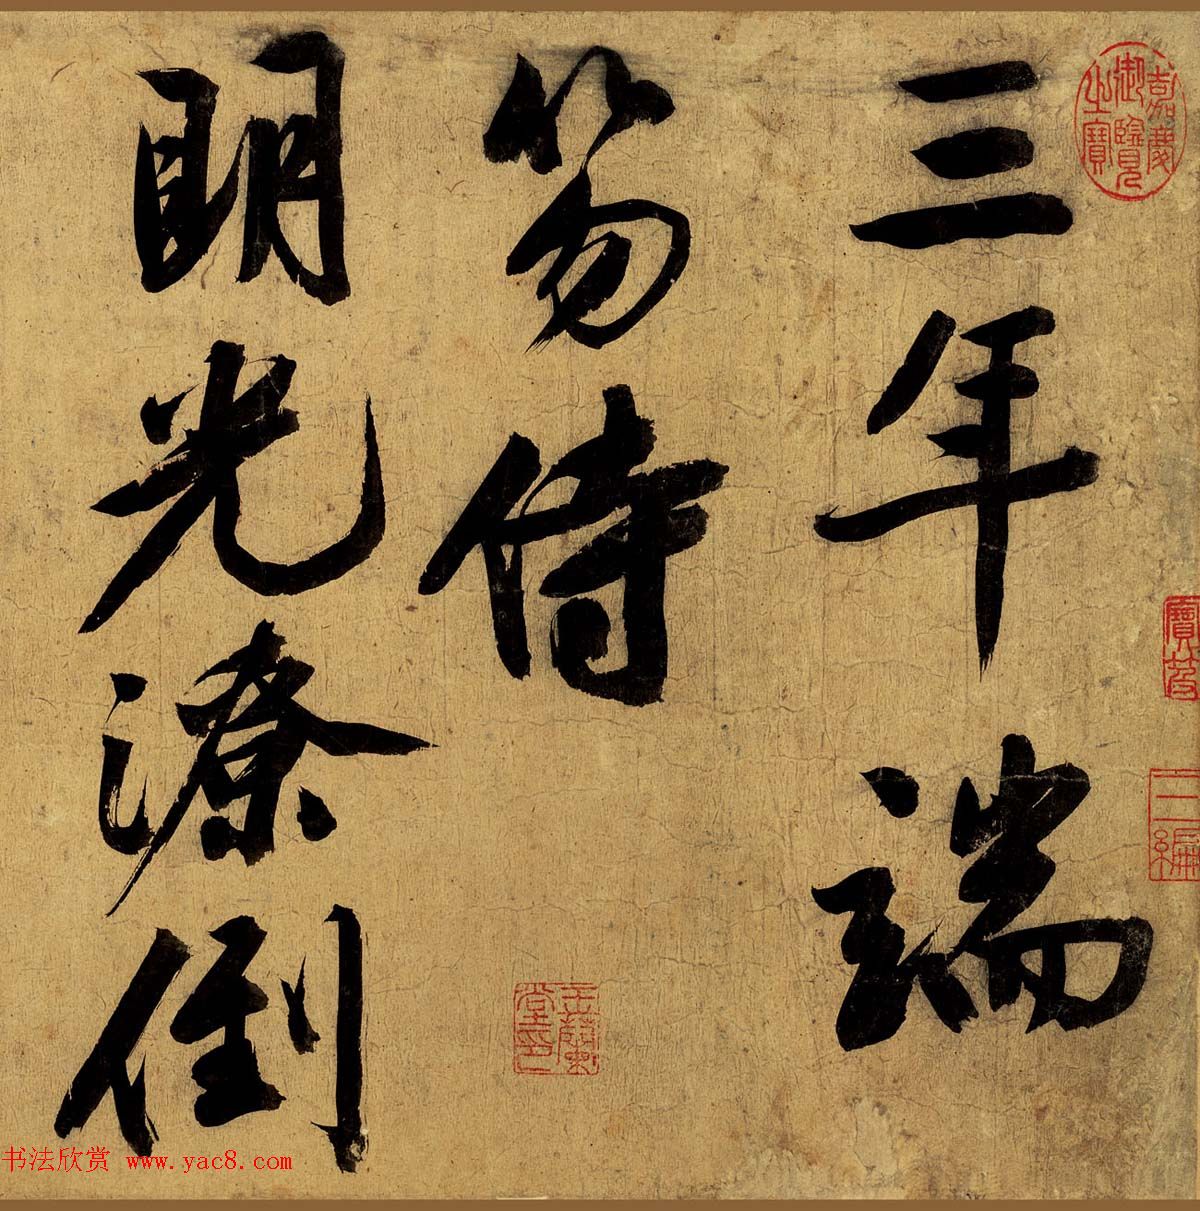 三年端
笏侍
明光潦倒
嘉慶御覽之寶
寶笈
三編
書法欣赏 www.yac8.com